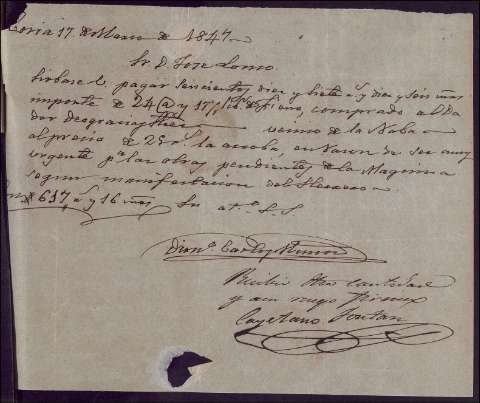 Coria 17 de Marzo de 1847
Sr. D. Jose Lomo
Sirbase V. pagar seiscientos diez y siete r.s y diez y seis mrs
importe de 24 @ y 17 comprado al Da
dor Deogracias vecino de la Naba
al precio de 25 r.s la arroba, en razon de ser muy
urgente p.a las obras pendientes de la Maquina
segun manifestacion del Herrero
Son 617 r.s y 16 mrs Su at.o S. S.
Dion.o Carlos
Recibi dha cantidad
y a su ruego firmo
Cayetano